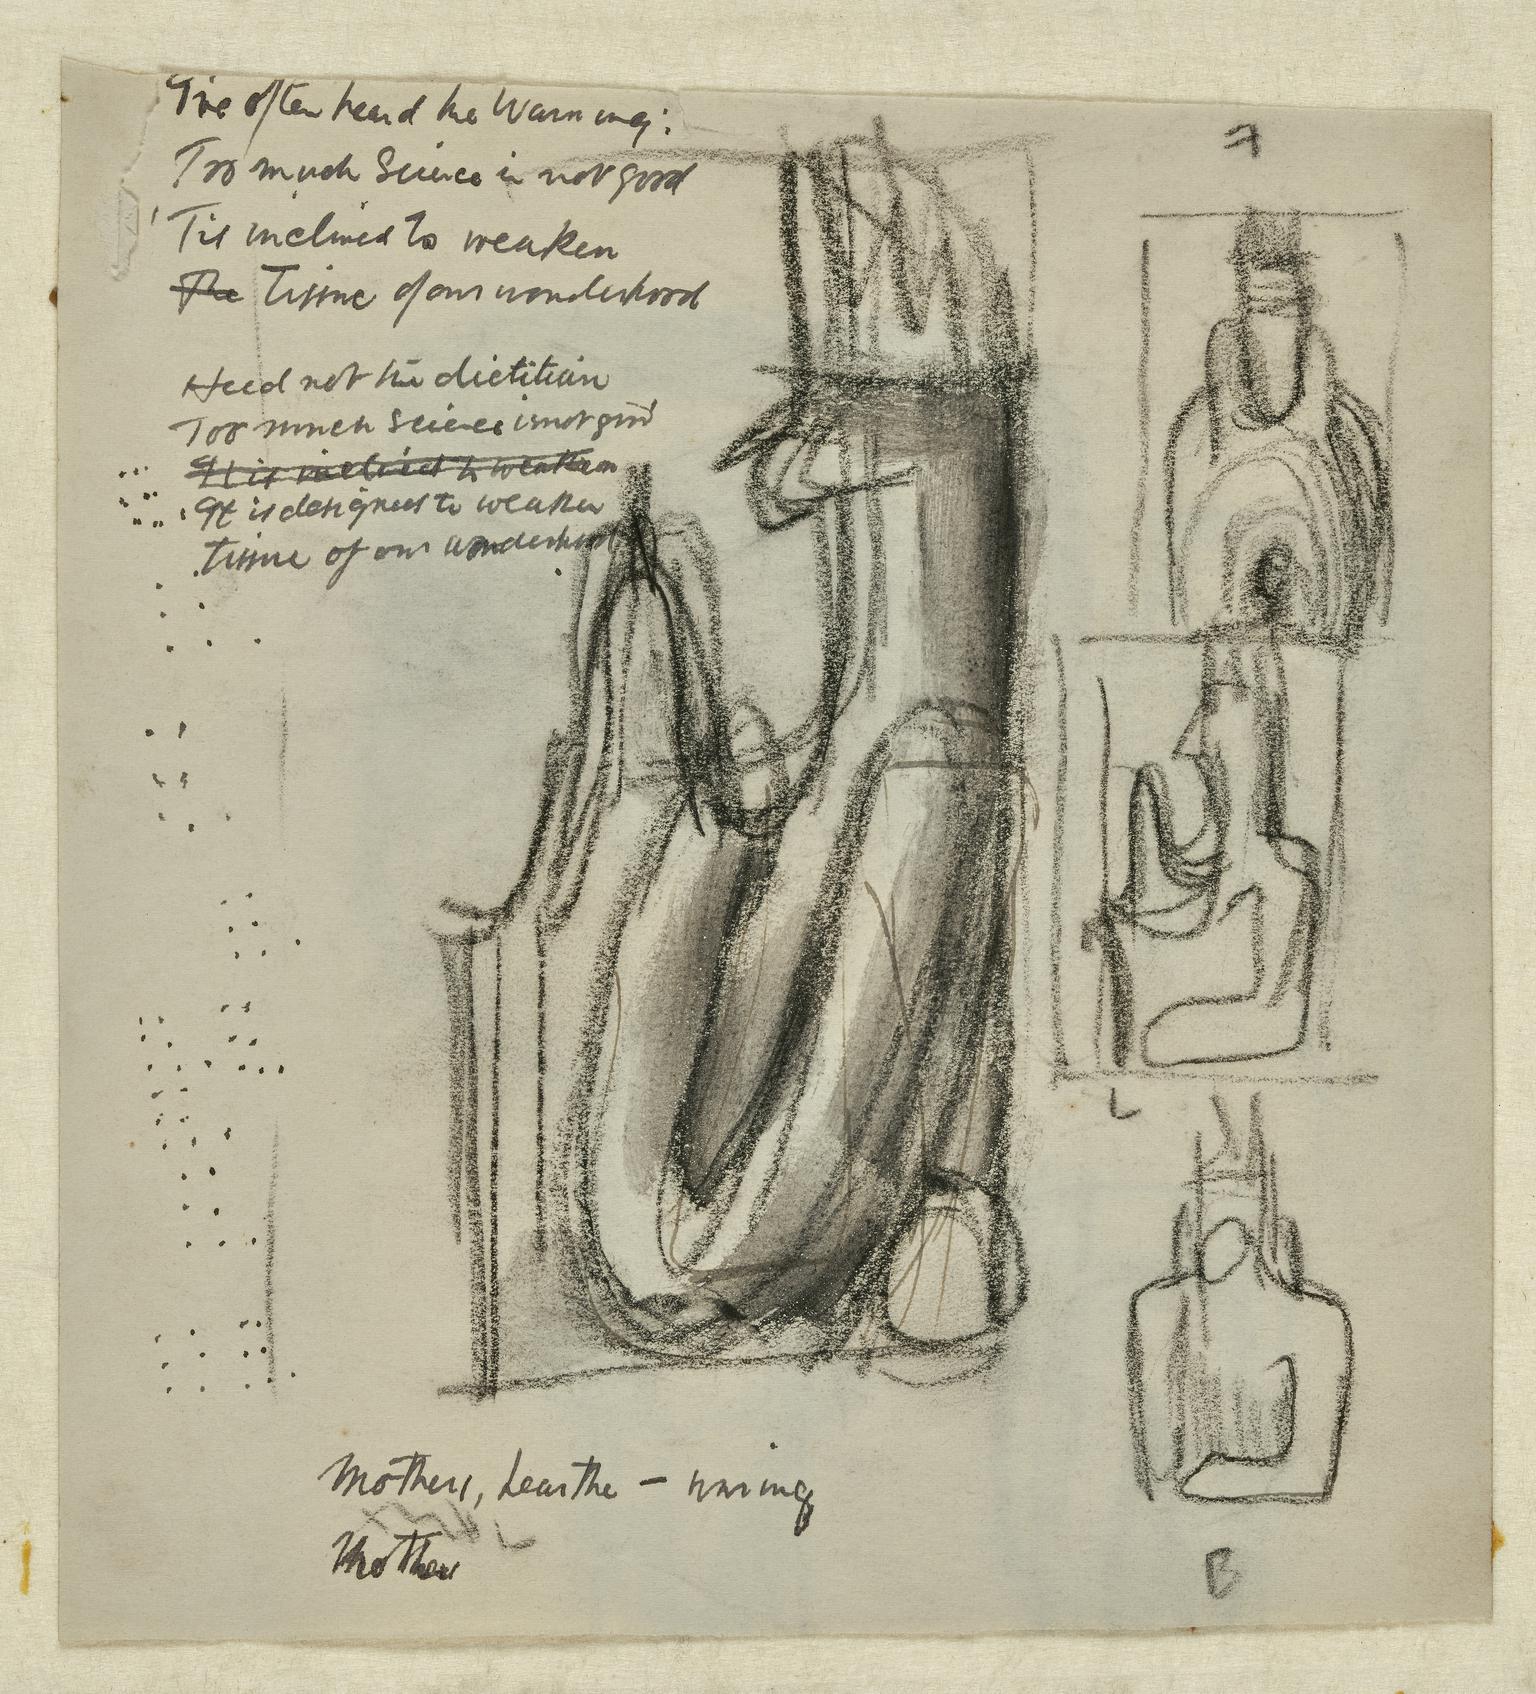 I've often heard the Warning:
Too much Science is not good
'Tis inclined to weaken
The Tissue of our wonderhood
Heed not the dietitian
Too much Science is not good
It is inclined to weaken
It is designed to weaken
tissue of our wonderhood
Mothers, hear the — waring
Mother
L
B